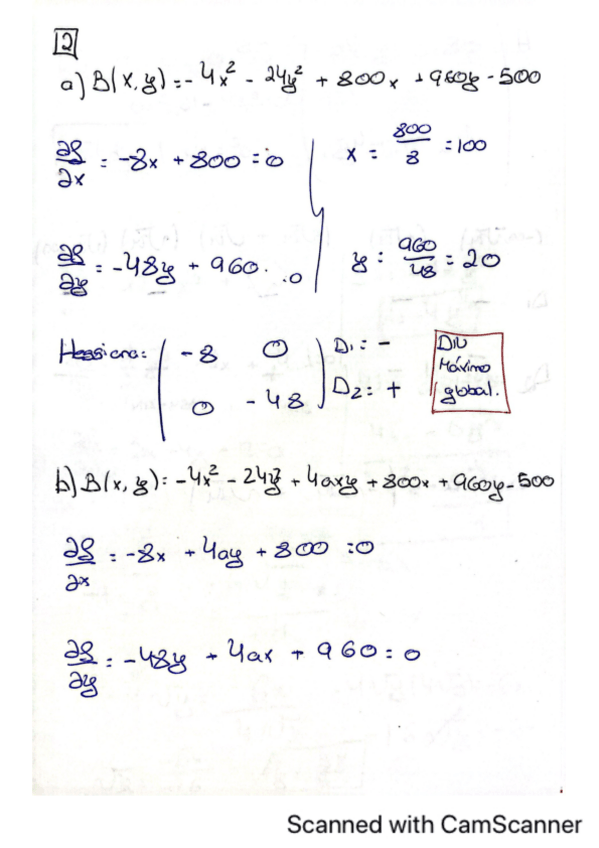 12
a) B(x, y) = -4x² - 24y² + 800x + 960y - 500
∂f/∂x = -8x + 800 = 0
x = 800/8 = 100
∂f/∂y = -48y + 960 = 0
y = 960/48 = 20
Hessiana: ( -8 0
0 -48 )
D1 = -
D2 = +
DN
Máximo
global.
b) B(x, y) = -4x² - 24y² + 4axy + 800x + 960y - 500
∂f/∂x = -8x + 4ay + 800 = 0
∂f/∂y = -48y + 4ax + 960 = 0
Scanned with CamScanner